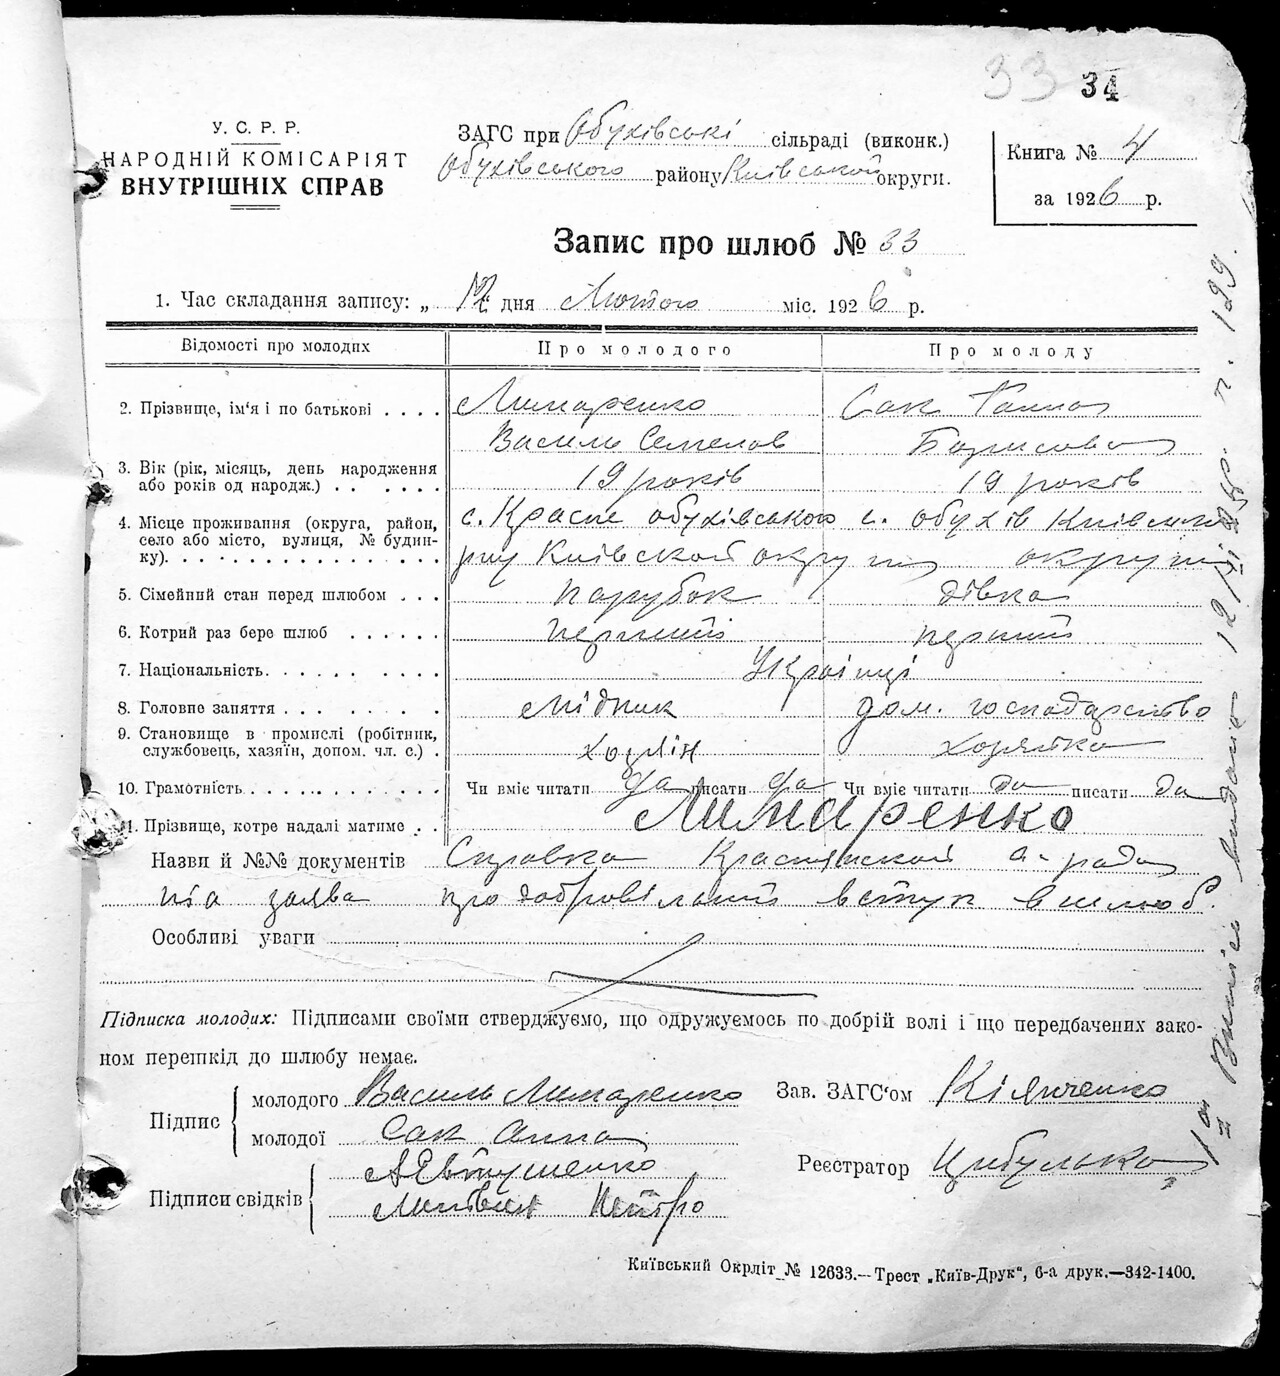 33 34
У. С. Р. Р.
НАРОДНІЙ КОМІСАРІЯТ
ВНУТРІШНІХ СПРАВ
ЗАГС при Обухівські сільраді (виконк.)
Обухівського району Київської округи.
Книга № 4
за 1926 р.
Запис про шлюб № 33
1. Час складання запису: „ 12 " дня Лютого міс. 1926 р.
Відомості про молодих Про молодого Про молоду
2. Прізвище, ім'я і по батькові . . . . Лимаренко Сак Ганна
Василь Семенов Борисова
3. Вік (рік, місяць, день народження 19 років 19 років
або років од народж.) . . . . . .
4. Місце проживання (округа, район, с. Красне Обухівського с. Обухів Київської
село або місто, вулиця, № будин-
ку). . . . . . . . . . . . . . . р-ну Київской округи округи
5. Сімейний стан перед шлюбом . . . парубок дівка
6. Котрий раз бере шлюб . . . . . . перший перший
7. Національність. . . . . . . . . . Українці
8. Головне заняття . . . . . . . . дом. господарство
9. Становище в промислі (робітник, хозяїн хозяйка
службовець, хазяїн, допом. чл. с.) .
10. Грамотність. . . . . . . . . . . Чи вміє читати да писати да Чи вміє читати да писати да
11. Прізвище, котре надалі матиме . . Лимаренко
Назви й №№ документів Справка Краснянской с-ради
та заява про добровільний вступ в шлюб.
Особливі уваги
Підписка молодих: Підписами своїми стверджуємо, що одружуємось по добрій волі і що передбачених зако-
ном перешкід до шлюбу немає.
Підпис
молодого Василь Лимаренко
молодої Сак Анна
Зав. ЗАГС'ом Кіянченко
Підписи свідків
А Євтушенко
Литвин Петро
Реєстратор Цибулько
Київський Окрліт № 12633.—Трест „Київ-Друк", 6-а друк.—342-1400.
Витяг видано 12/